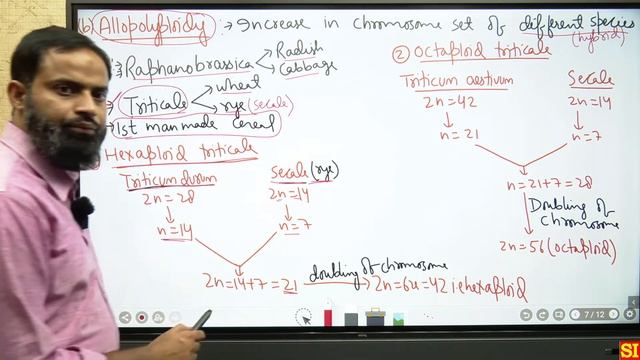 (b) Allopolyploidy :→ Increase in chromosome set of different species
(hybrid)
Raphanobrassica
Radish
Cabbage
Triticale
wheat
rye (secale)
1st man made cereal
Hexaploid triticale
Triticum durum
2n = 28
n=14
Secale (rye)
2n = 14
n=7
2n=14+7 = 21
doubling of chromosome
2n=6x=42 i.e hexaploid
② Octaploid triticale
Triticum aestivum
2n = 42
n = 21
Secale
2n = 14
n=7
n = 21+7 = 28
Doubling of
chromosome
2n = 56 (octaploid)
7 / 12
SI